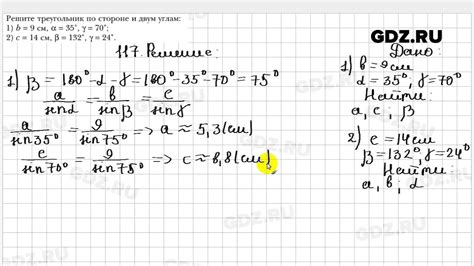 Решите треугольник по стороне и двум углам:
1) b = 9 см, α = 35°, γ = 70°;
2) c = 14 см, β = 132°, γ = 24°.
GDZ.RU
117. Решение:
1) β = 180° - α - γ = 180° - 35° - 70° = 75°
a/sin α = b/sin β = c/sin γ
a/sin 35° = 9/sin 75° => a ≈ 5,3 (см)
c/sin 70° = 9/sin 75° => c ≈ 8,8 (см)
Дано:
1) b = 9 см
α = 35°, γ = 70°
Найти:
a, c, β
2) c = 14 см
β = 132°, γ = 24°
Найти:
a, b, α